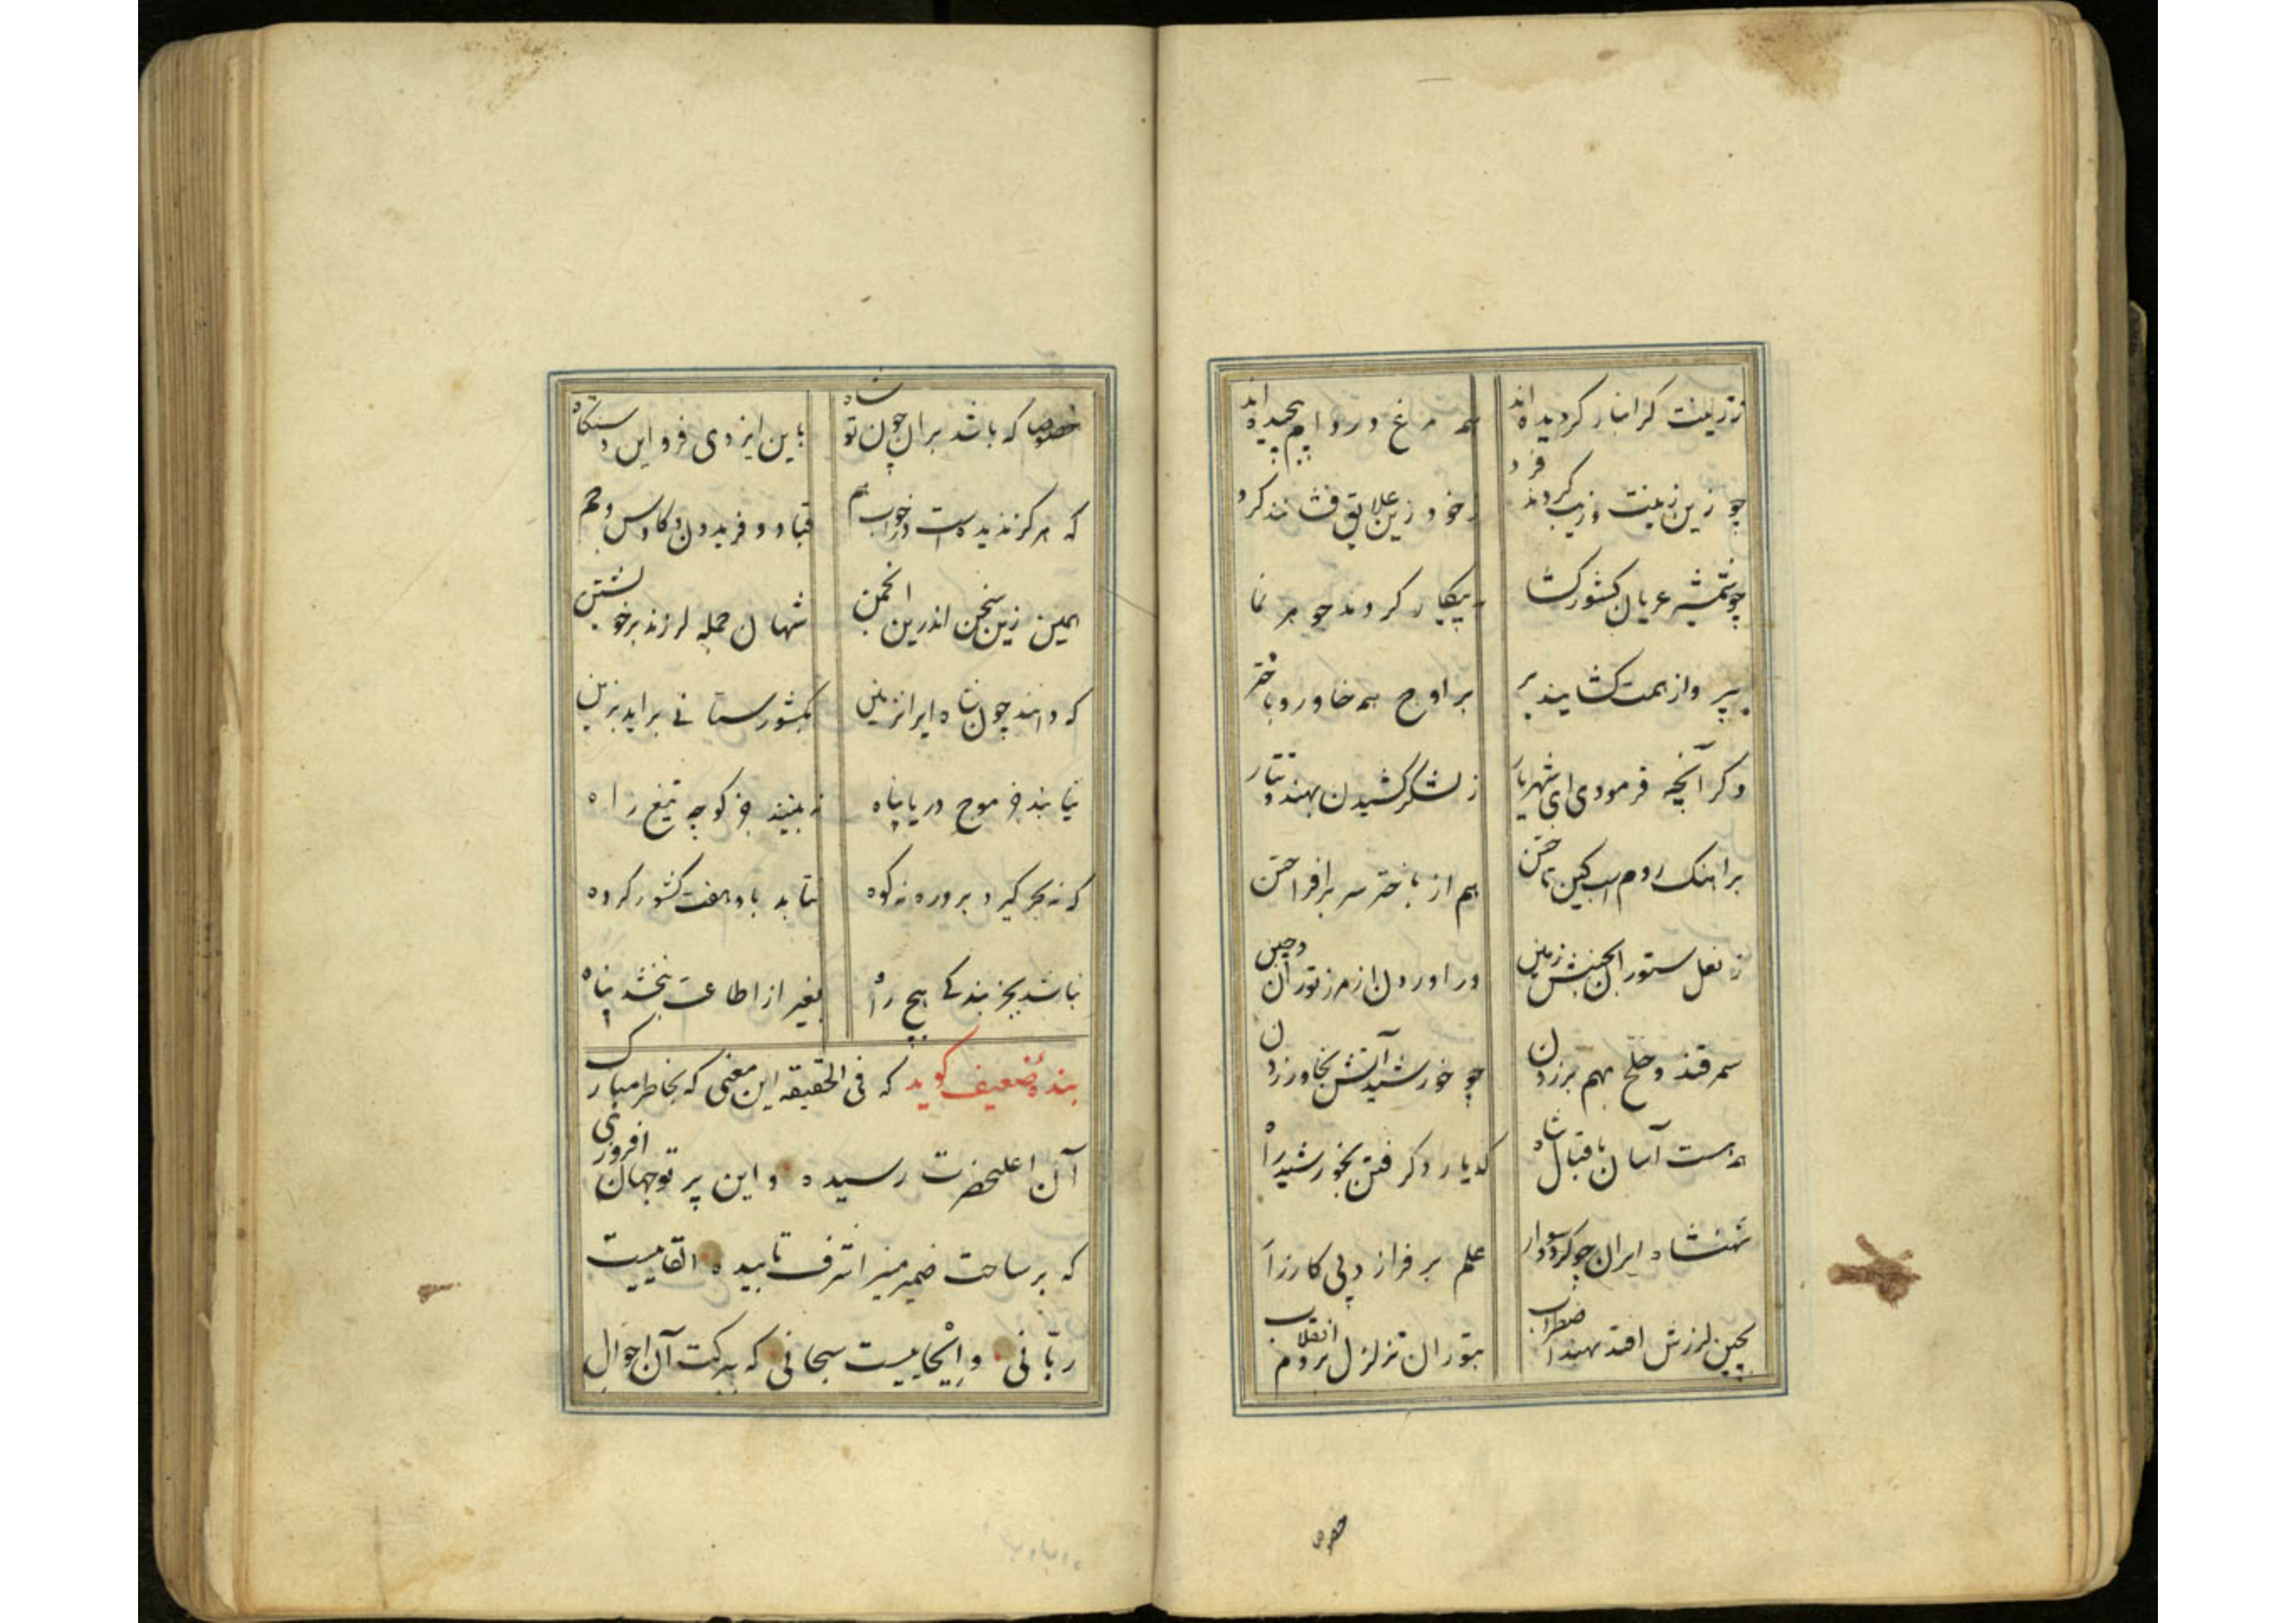 ززینت کرانبار کردیده‌اند همه مرغ در دام پیچیده‌اند
چو زین زینت و زیب کردند فرد ز خود زین علایق فشانند کرد
چو شمشیر عریان کشورکشا به پیکار کردند جوهر نما
به پرواز همت کشایند پر بر اوج همه خاور و باختر
وکر آنچه فرمودی ای شهریار ز لشکر کشیدن بهند و تتار
برآهنک روم اسب کین تاختن هم از باختر سر برافراختن
ز نعل ستوران بجنبش زمین در اوردن از مرز توران و چین
سمرقند و خلخ بهم بر زدن چو خورشید آتش بخاور زدن
همه هست آسان باقبال شاه که یارد کرفتن بخورشید راه
شهنشاه ایران چو کردد سوار علم بر فرازد پی کارزار
بچین لرزش افتد بهند اضطراب بتوران تزلزل بروم انقلاب
خصوصا
خصوصا که باشد بران چون تو شاه باین ایزدی فر و این دستکاه
که هرکز ندیدست در خواب هم قباد و فریدون و کاوس و جم
همین زین سخن اندرین انجمن شهان جمله لرزند بر خویشتن
که دانند چون شاه ایران زمین بکشورستانی براید بزین
نیابند جز موج دریا پناه نه بینند جز کوچه تیغ راه
که نه بحر کیرد بروره نه کوه نتابد باو هفت کشور کروه
نباشد بجز بندکی هیچ راه بغیر از اطاعت نبخشد پناه
بندهٔ ضعیف کوید که فی الحقیقه این معنی که بخاطر مبارک
آن اعلیحضرت رسیده و این پرتو جهان افروزی
که بر ساحت ضمیر منیر اشرف تابیده القاییست
ربّانی و ایحاییست سبحانی که ببرکت آن احوال